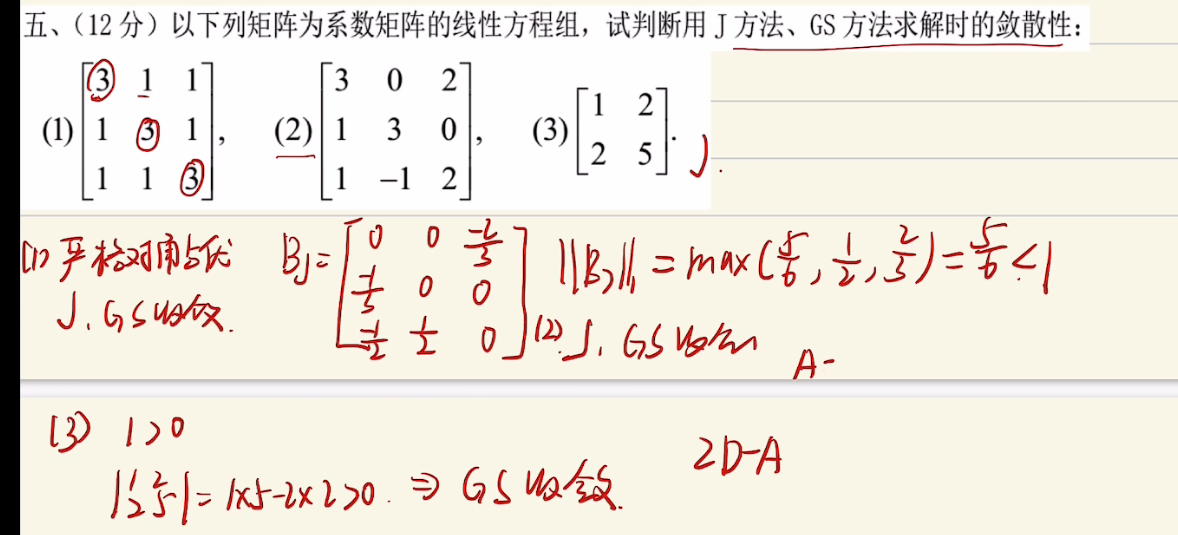 五、（12 分）以下列矩阵为系数矩阵的线性方程组，试判断用 J 方法、GS 方法求解时的敛散性：
(1) [3 1 1; 1 3 1; 1 1 3], (2) [3 0 2; 1 3 0; 1 -1 2], (3) [1 2; 2 5]. J.
(1) 严格对角占优 B_J = [0 0 -2/3; -1/3 0 0; -1/2 1/2 0] ||B_J||_1 = max(5/6, 1/2, 2/3) = 5/6 < 1
J、GS收敛. (2) J、GS收敛
A-
(3) 1>0
2D-A
|1 2; 2 5| = 1×5-2×2>0. ⇒ GS收敛.